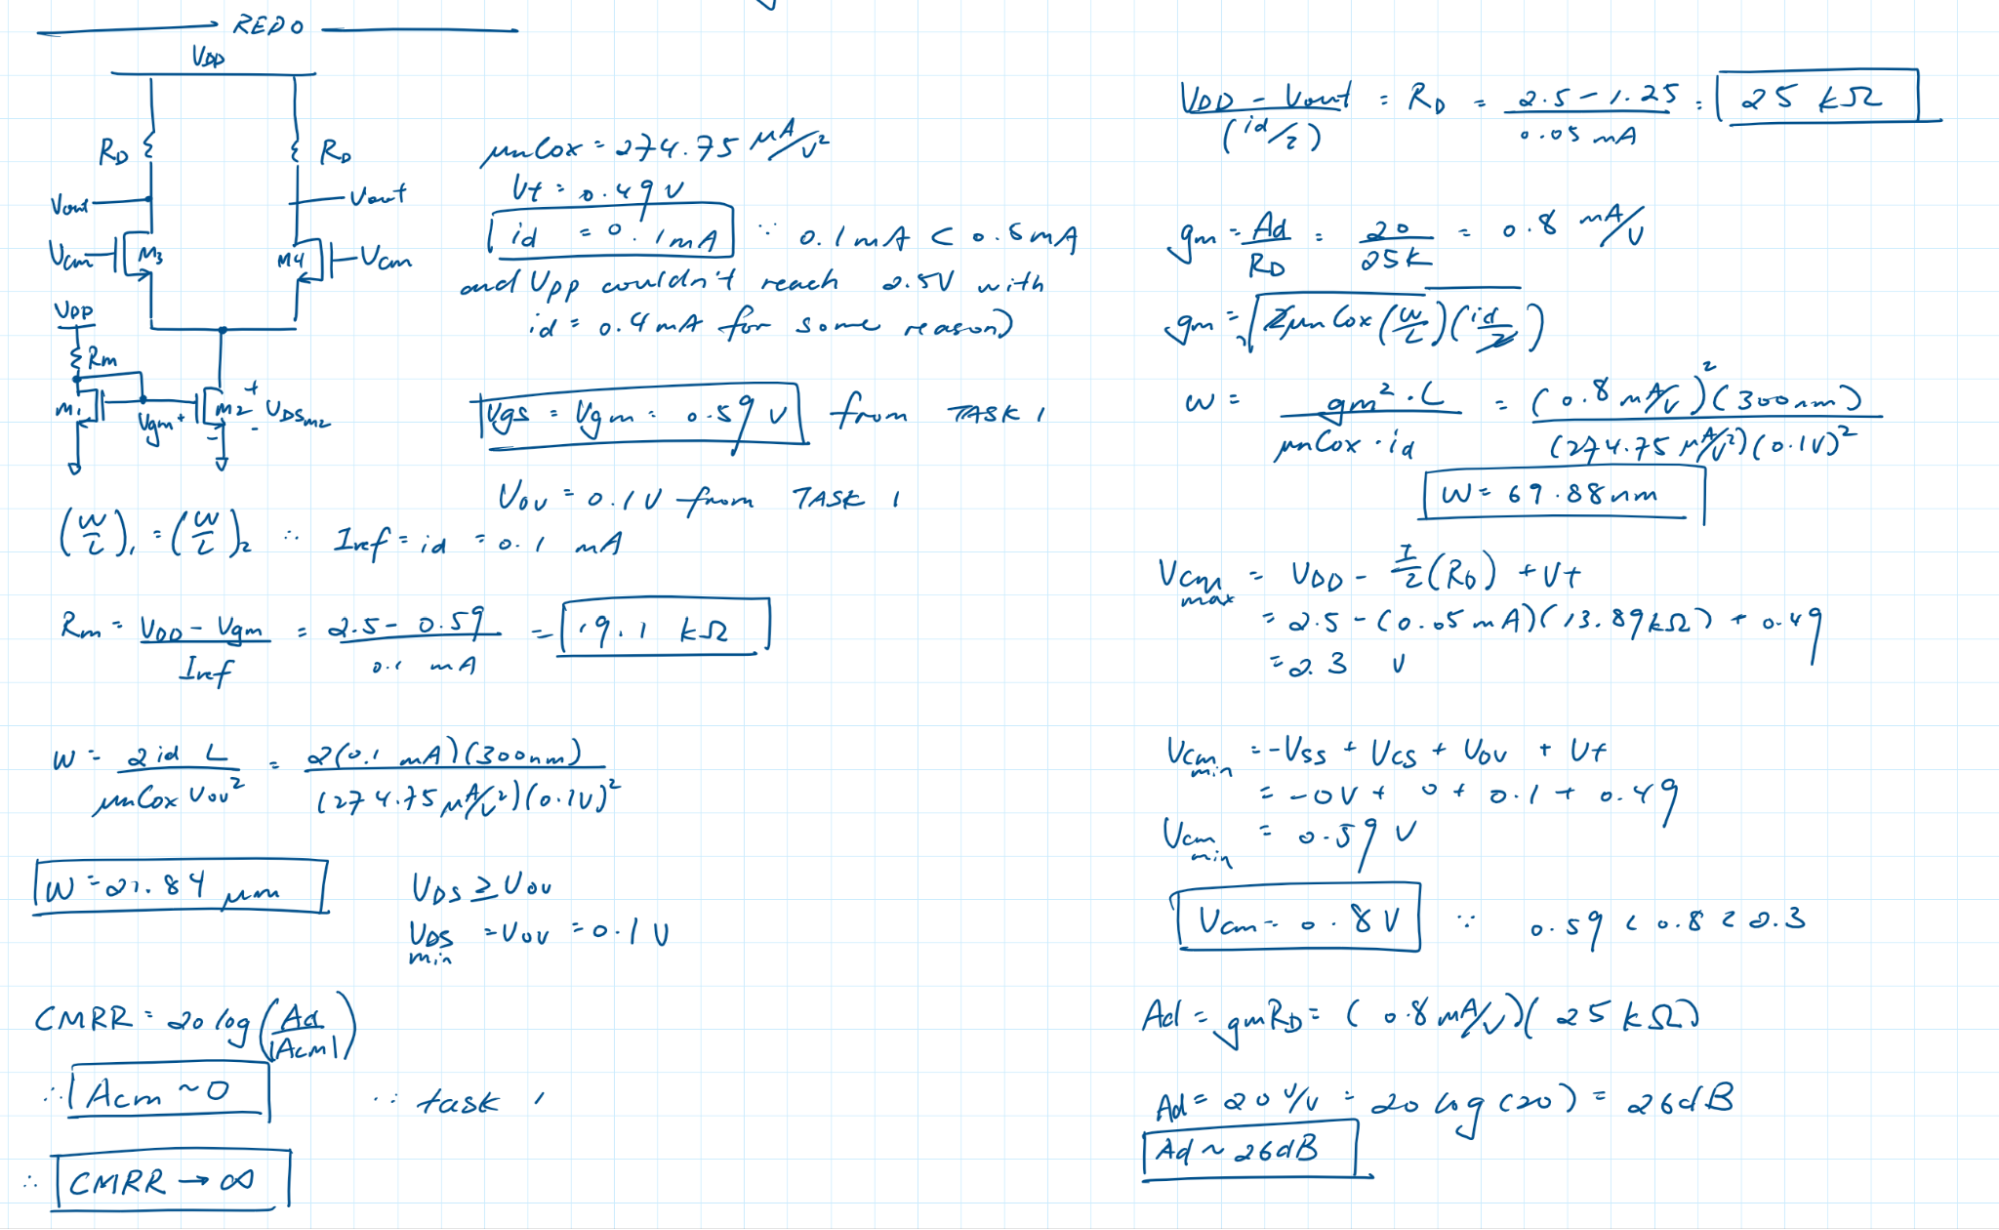 REDO
VDD
RD
RD
Vout
Vout
Vcm
M3
M4
Vcm
VDD
Rm
M1
Vgm
+
-
M2
+
VDSM2
-
μnCox = 274.75 μA/V²
Vt = 0.49 V
id = 0.1mA ∵ 0.1mA < 0.5mA
and VDD couldn't reach 2.5V with
id = 0.4mA for some reason)
Vgs = Vgm = 0.59 V from TASK 1
Vov = 0.1 V from TASK 1
(W/L)1 = (W/L)2 ∴ Iref = id = 0.1 mA
Rm = (VDD - Vgm)/Iref = (2.5 - 0.59)/(0.1 mA) = 19.1 kΩ
W = (2 id L)/(μnCox Vov²) = (2(0.1 mA)(300nm))/((274.75 μA/V²)(0.1V)²)
W = 21.84 μm
VDS ≥ Vov
VDS min = Vov = 0.1 V
CMRR = 20 log(Ad/|Acm|)
∴ Acm ~ 0 ∵ task 1
∴ CMRR → ∞
(VDD - Vout)/(id/2) = RD = (2.5 - 1.25)/(0.05 mA) = 25 kΩ
gm = Ad/RD = 20/25K = 0.8 mA/V
gm = √(2μnCox(W/L)(id/2))
W = (gm² · L)/(μnCox · id) = ((0.8 mA/V)²(300nm))/((274.75 μA/V²)(0.1V)²)
W = 69.88nm
Vcm max = VDD - I/2 (RD) + Vt
= 2.5 - (0.05 mA)(13.89kΩ) + 0.49
= 2.3 V
Vcm min = -Vss + Vcs + Vov + Vt
= -0V + 0 + 0.1 + 0.49
Vcm min = 0.59 V
Vcm = 0.8 V ∵ 0.59 < 0.8 < 2.3
Ad = gmRD = (0.8 mA/V)(25 kΩ)
Ad = 20 V/V = 20 log(20) = 26dB
Ad ~ 26dB